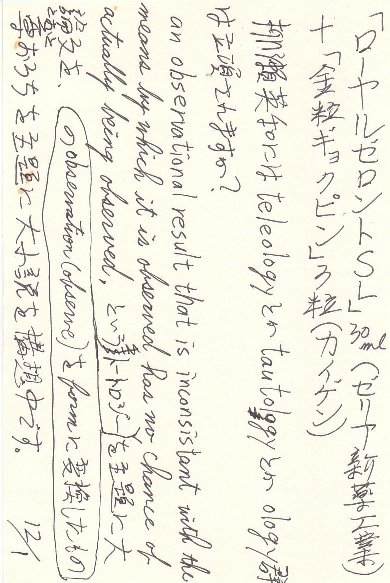 「ローヤルゼロントSL」30ml(ゼリア新薬工業)
+「金粒ギックピン」3粒(カイゲン)
柳瀬英子にはteleologyとかtautologyとかology癖
ますか?
an observational result that is inconsistant with the
means by which it is observed has no chance of
actually being observed, という事 を主題に大
論文を、
のobservation(observe)をformに変換したもの
を主題に大小説を構想中です。 12/1